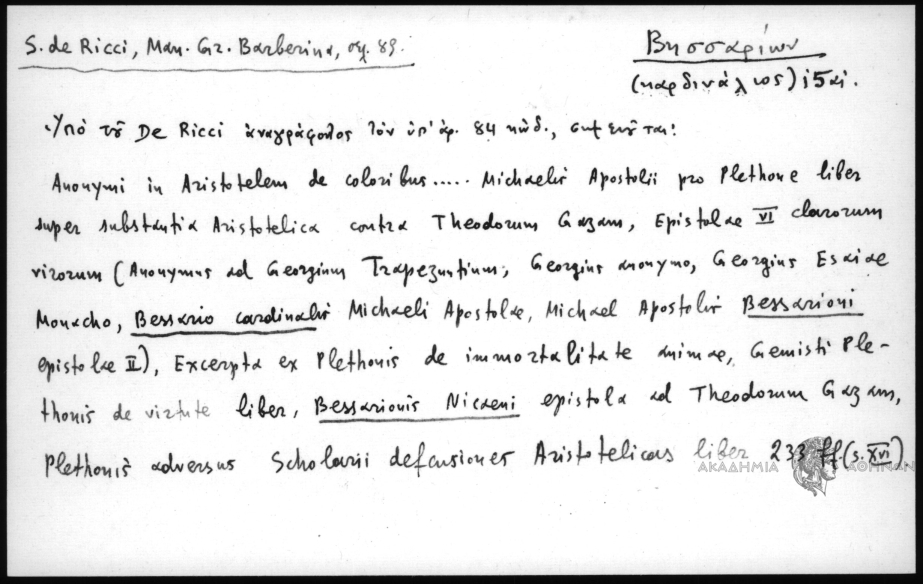 S. de Ricci, Man. Gr. Barberina, σχ. 89.
Βησσαρίων
(καρδινάλιος) ις αἰ.
Ὑπὸ τοῦ De Ricci ἀναγράφοντος τὸν ὑπ' ἀρ. 84 κώδ., σημειοῦται:
Anonymi in Aristotelem de coloribus..... Michaelis Apostolii pro Plethone liber
super substantia Aristotelica contra Theodorum Gazam, Epistolae VI clarorum
virorum (Anonymus ad Georgium Trapezuntium, Georgius anonymo, Georgius Esaiae
Monacho, Bessario cardinalis Michaeli Apostolae, Michael Apostolis Bessarioni
epistolae II), Excerpta ex Plethonis de immortalitate animae, Gemisti Ple-
thonis de virtute liber, Bessarionis Nicaeni epistola ad Theodorum Gazam,
Plethonis adversus Scholarii defensiones Aristotelicas liber 233 ff. (s. XVI)
ΑΚΑΔΗΜΙΑ ΑΘΗΝΩΝ